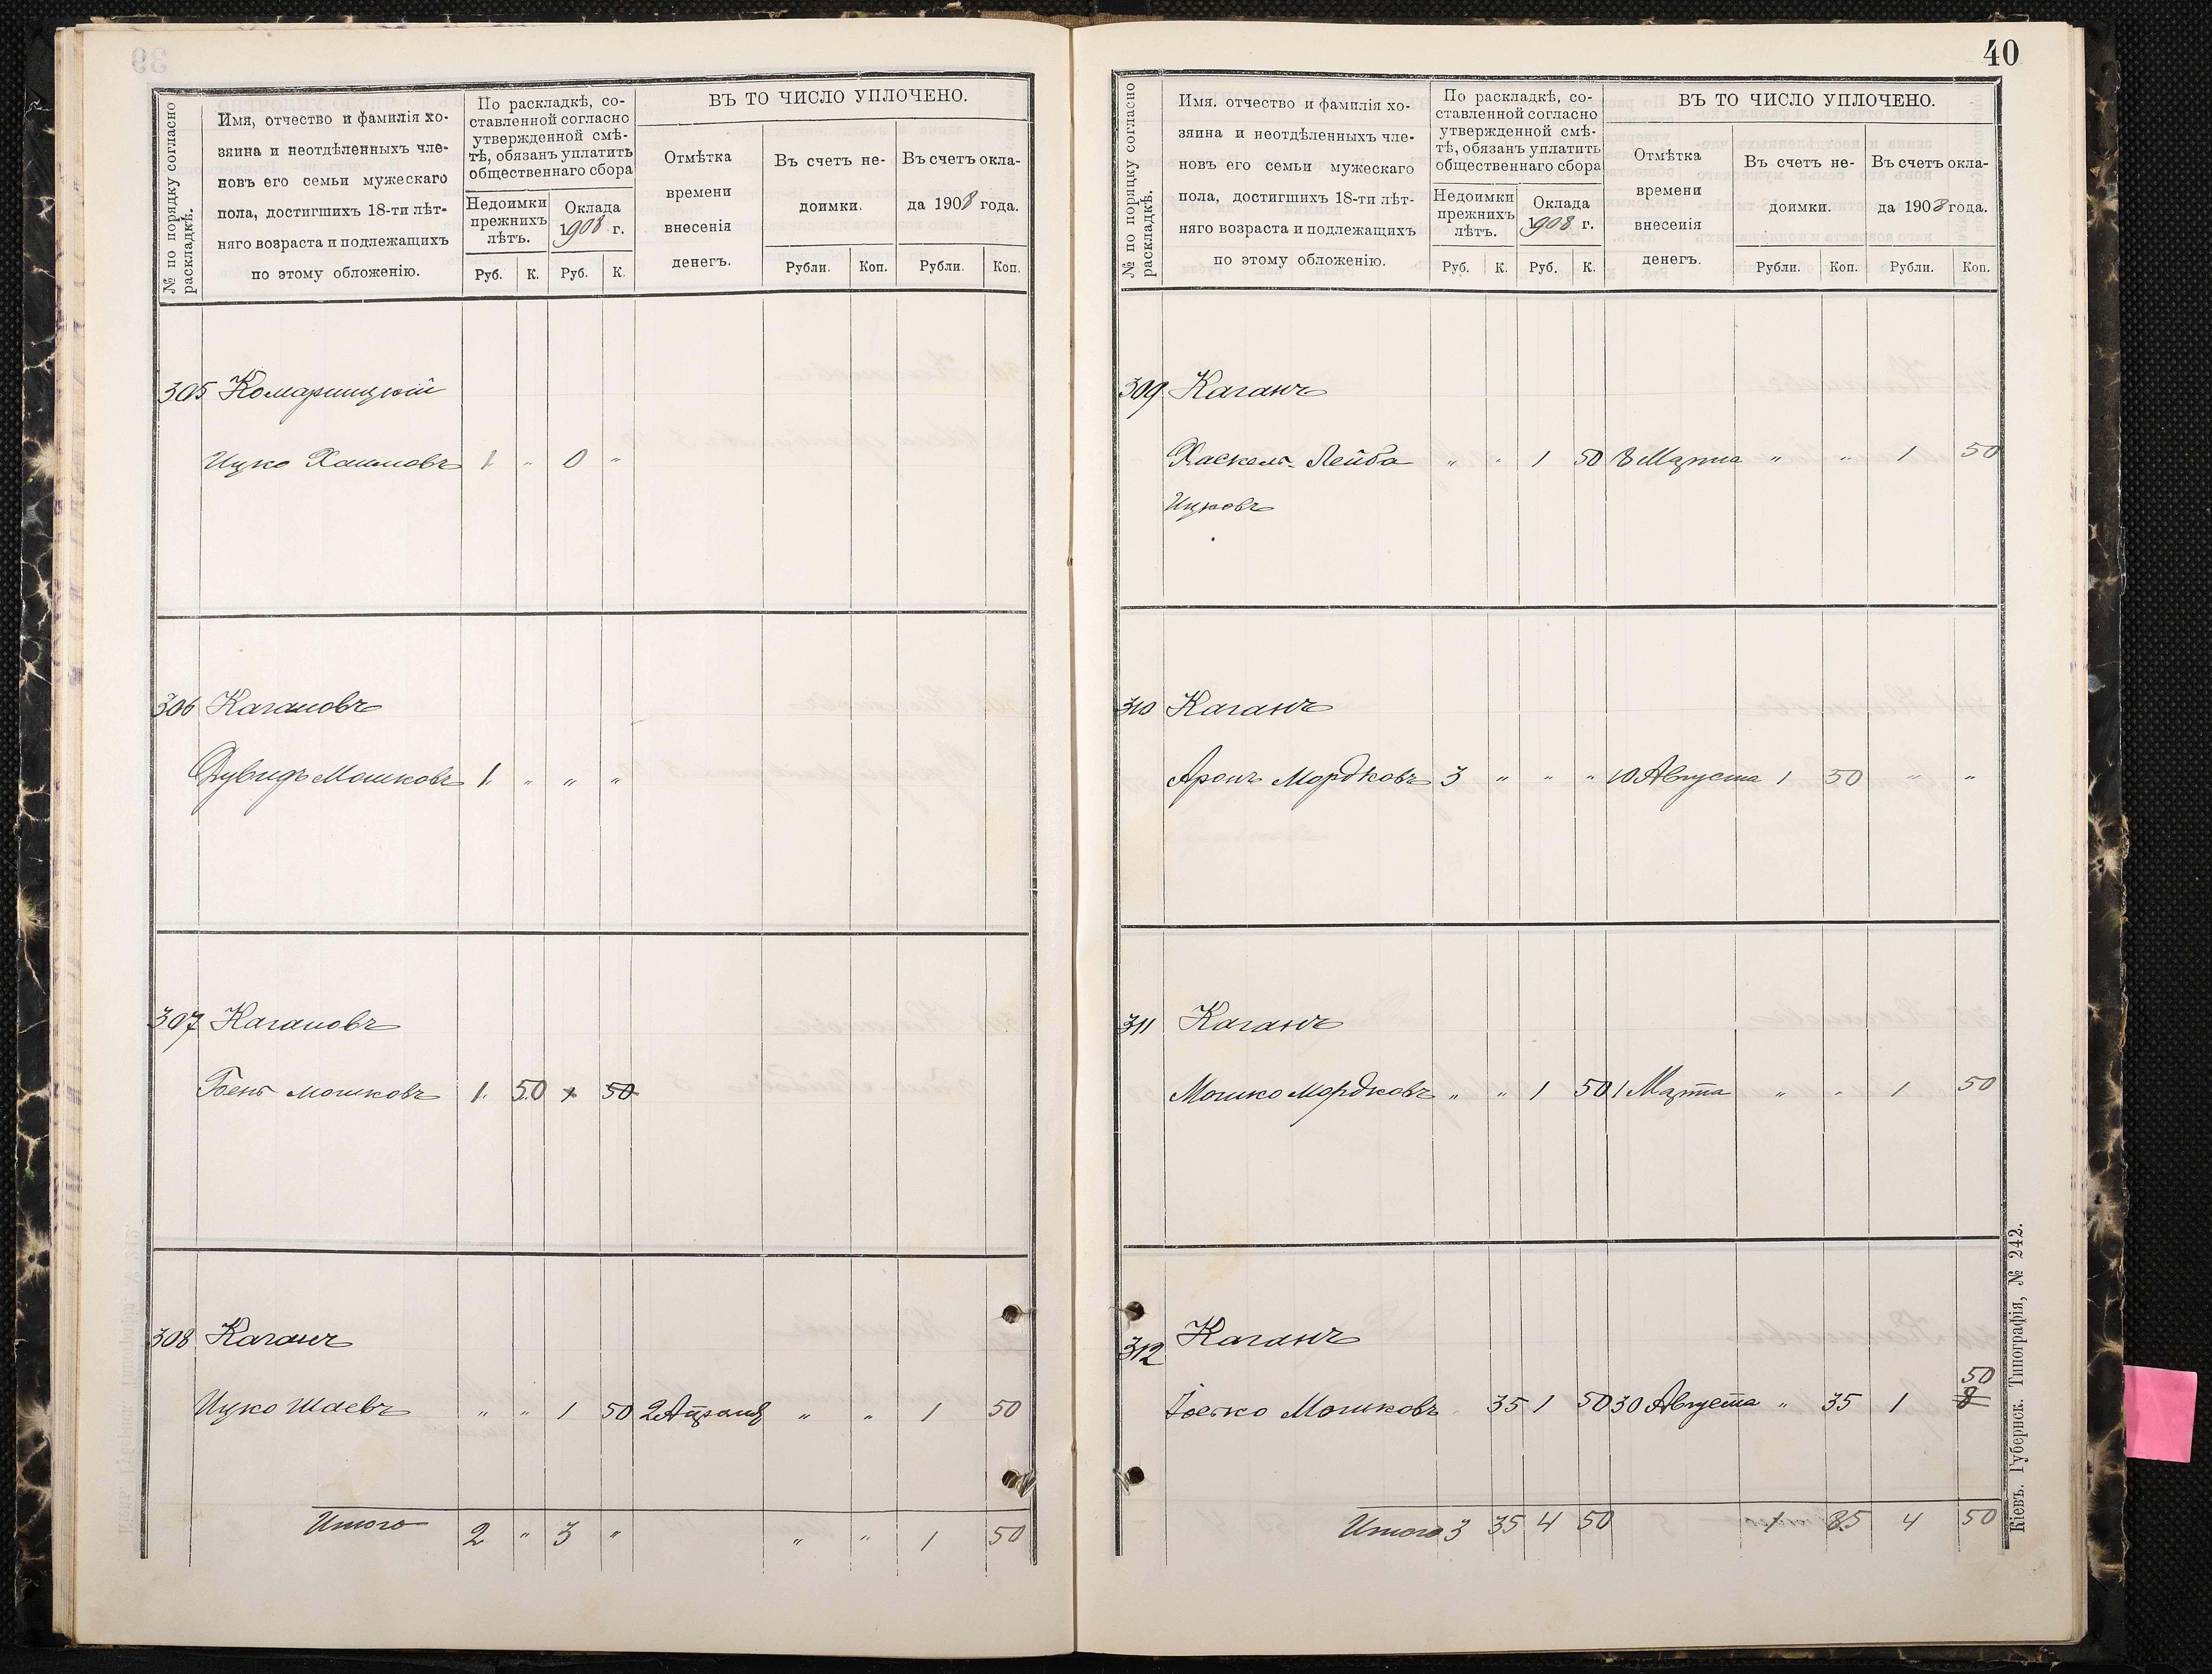 № по порядку согласно раскладкѣ.
Имя, отчество и фамилія хо-
зяина и неотдѣленныхъ чле-
новъ его семьи мужескаго
пола, достигшихъ 18-ти лѣт-
няго возраста и подлежащихъ
по этому обложенію.
По раскладкѣ, со-
ставленной согласно
утвержденной смѣ-
тѣ, обязанъ уплатить
общественнаго сбора
Недоимки
прежнихъ
лѣтъ.
Оклада
1908 г.
Руб. К. Руб. К.
ВЪ ТО ЧИСЛО УПЛОЧЕНО.
Отмѣтка
времени
внесенія
денегъ.
Въ счетъ не-
доимки.
Въ счетъ окла-
да 1908 года.
Рубли. Коп. Рубли. Коп.
305 Комарницкій
Ицко Хаимовъ 1 " 0 "
306 Кагановъ
Дувидъ Мошковъ 1 " " "
307 Кагановъ
Мошковъ 1 50 1 50
308 Каганъ
Ицко Шаевъ " " 1 50 2 Апрѣля " " 1 50
Итого 2 " 3 " " " 1 50
40
№ по порядку согласно раскладкѣ.
Имя, отчество и фамилія хо-
зяина и неотдѣленныхъ чле-
новъ его семьи мужескаго
пола, достигшихъ 18-ти лѣт-
няго возраста и подлежащихъ
по этому обложенію.
По раскладкѣ, со-
ставленной согласно
утвержденной смѣ-
тѣ, обязанъ уплатить
общественнаго сбора
Недоимки
прежнихъ
лѣтъ.
Оклада
1908 г.
Руб. К. Руб. К.
ВЪ ТО ЧИСЛО УПЛОЧЕНО.
Отмѣтка
времени
внесенія
денегъ.
Въ счетъ не-
доимки.
Въ счетъ окла-
да 1908 года.
Рубли. Коп. Рубли. Коп.
309 Каганъ
Хаскель-Лейба " " 1 50 8 Марта " " 1 50
Ицковъ
310 Каганъ
Аронъ Мордковъ 3 " " " 10 Августа 1 50 " "
311 Каганъ
Мошко Мордковъ " " 1 50 1 Марта " " 1 50
312 Каганъ
50
Іосько Мошковъ 35 1 50 30 Августа " 35 1 8
Итого 3 35 4 50 1 85 4 50
Кіевъ. Губернск. Типографія, № 242.